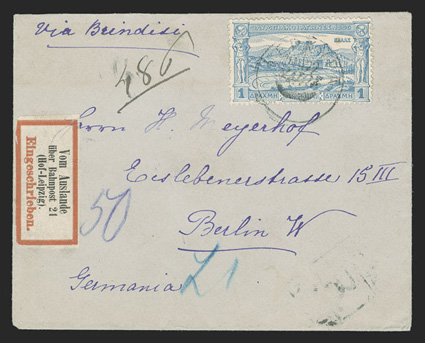 Via Brindisi
486
ΕΛΛΑΣ
1 ΔΡΑΧΜΗ ΔΡΑΧΜΗ 1
Herrn H. Meyerhof
Eislebenerstrasse 15 III
Berlin W
Germania
Vom Auslande
über Bahnpost 21
(Hof-Leipzig).
Eingeschrieben.
50